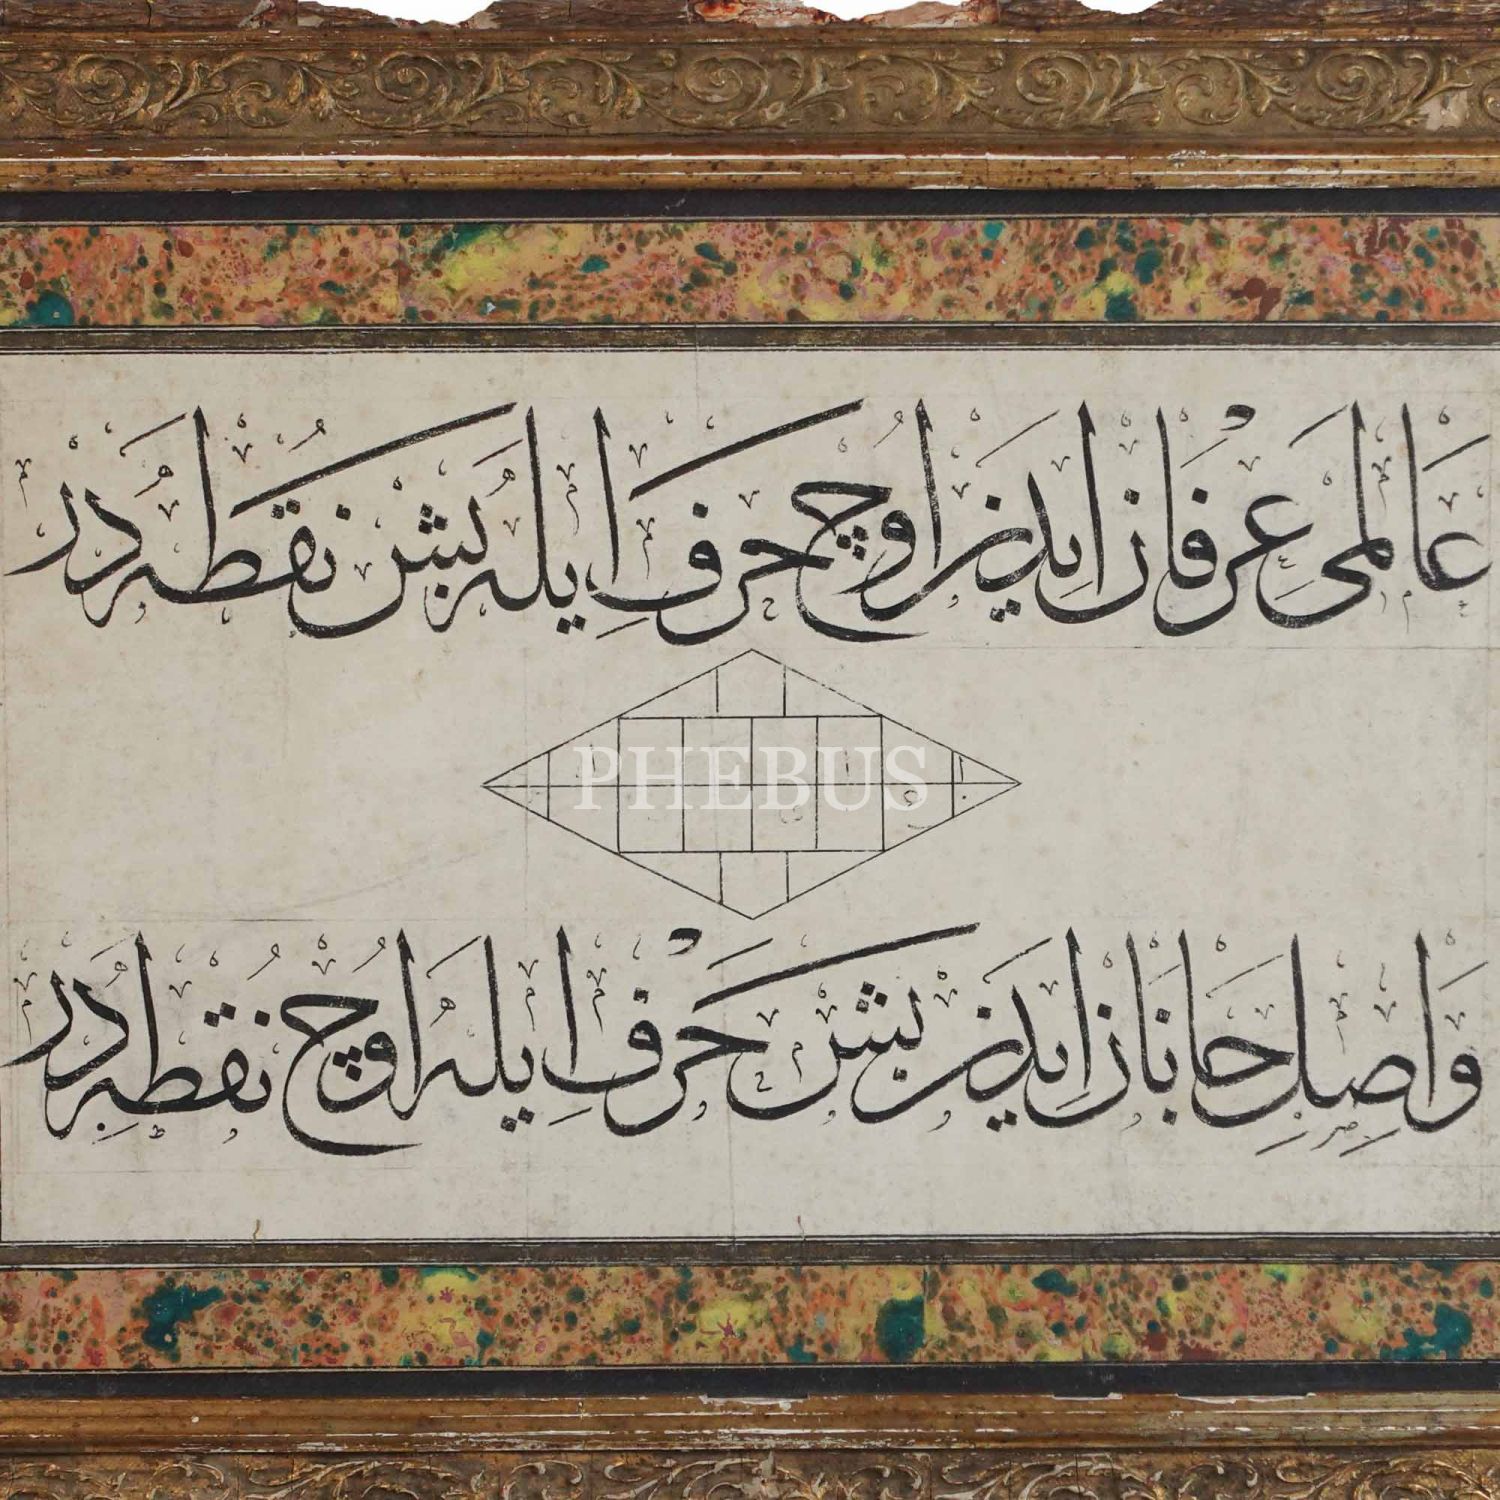 عَالمی عِرْفان ایدَنْ اوُچ حَرْفِ ایلَه بَشْ نُقْطَه دُر
PHEBUS
وَاصِلِ جَانان ایدَنْ بَشْ حَرْفِ ایلَه اوُچ نُقْطَه دُر